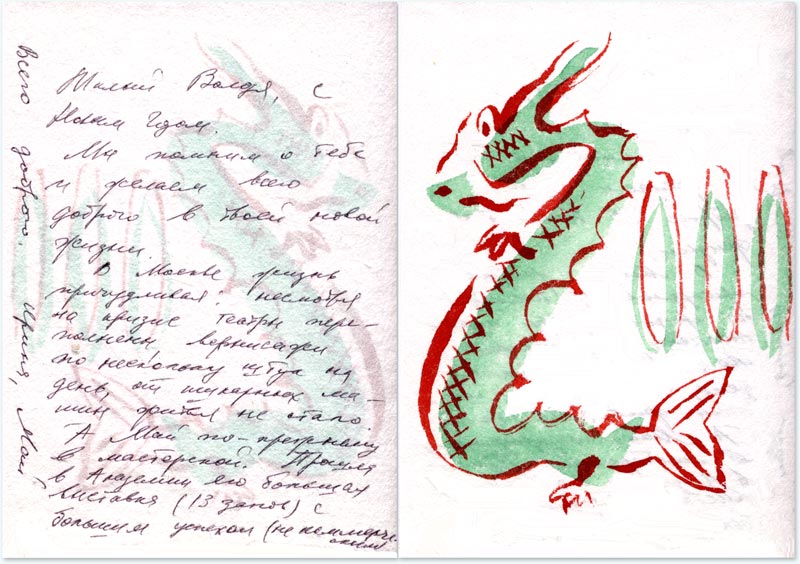 Милый Володя, с
Новым Годом.
Мы помним о тебе
и желаем всего
доброго в твоей новой
жизни.
В Москве жизнь
причудливая. несмотря
на кризис театры пере-
полнены, вернисажи
по несколько штук на
день, от шикарных ма-
шин житья не стало.
А Май по-прежнему
в мастерской. Прошла
в Академии его большая
выставка (13 залов) с
большим успехом (не коммерче-
ским)
Всего доброго. Ирина, Май
2000